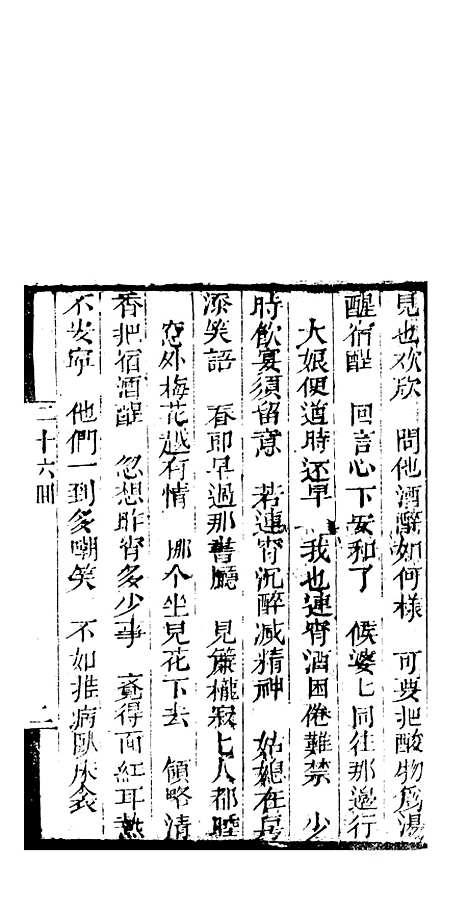 見也欢欣　問他酒醉如何樣　可要把酸物爲湯
醒宿酲　回言心下安和了　候婆匕同往那邉行
大娘便道時还早　我也連宵酒困倦難禁　少
時飲宴須留意　若連宵沉醉减精神　姑娘在房
添笑語　春郎早過那書廳　見簾櫳寂匕人都睡
窓外梅花越有情　那个坐見花下去　領略清
香把宿酒醒　忽想昨宵多少事　竟得面紅耳熱
不安寧　他們一到多嘲笑　不如推病臥床衾
二十六囬
二